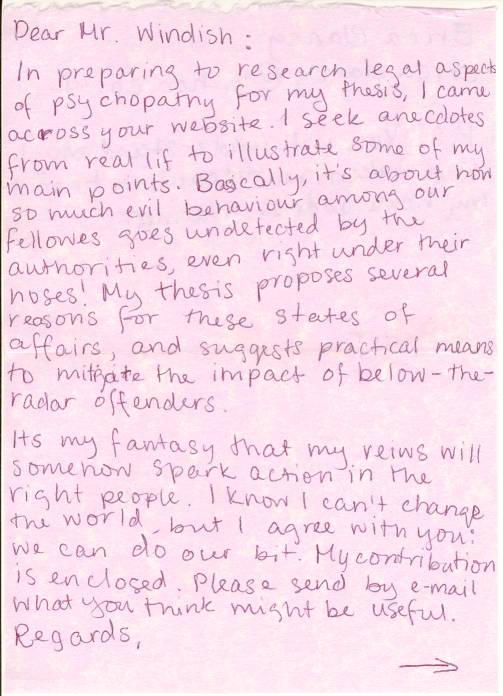 Dear Mr. Windish:
In preparing to research legal aspects
of psychopathy for my thesis, I came
across your website. I seek anecdotes
from real lif to illustrate some of my
main points. Basically, it's about how
so much evil behaviour among our
fellowes goes undetected by the
authorities, even right under their
noses! My thesis proposes several
reasons for these states of
affairs, and suggests practical means
to mitigate the impact of below-the-
radar offenders.
Its my fantasy that my reiws will
somehow spark action in the
right people. I know I can't change
the world, but I agree with you:
we can do our bit. My contribution
is enclosed. Please send by e-mail
what you think might be useful.
Regards,
→